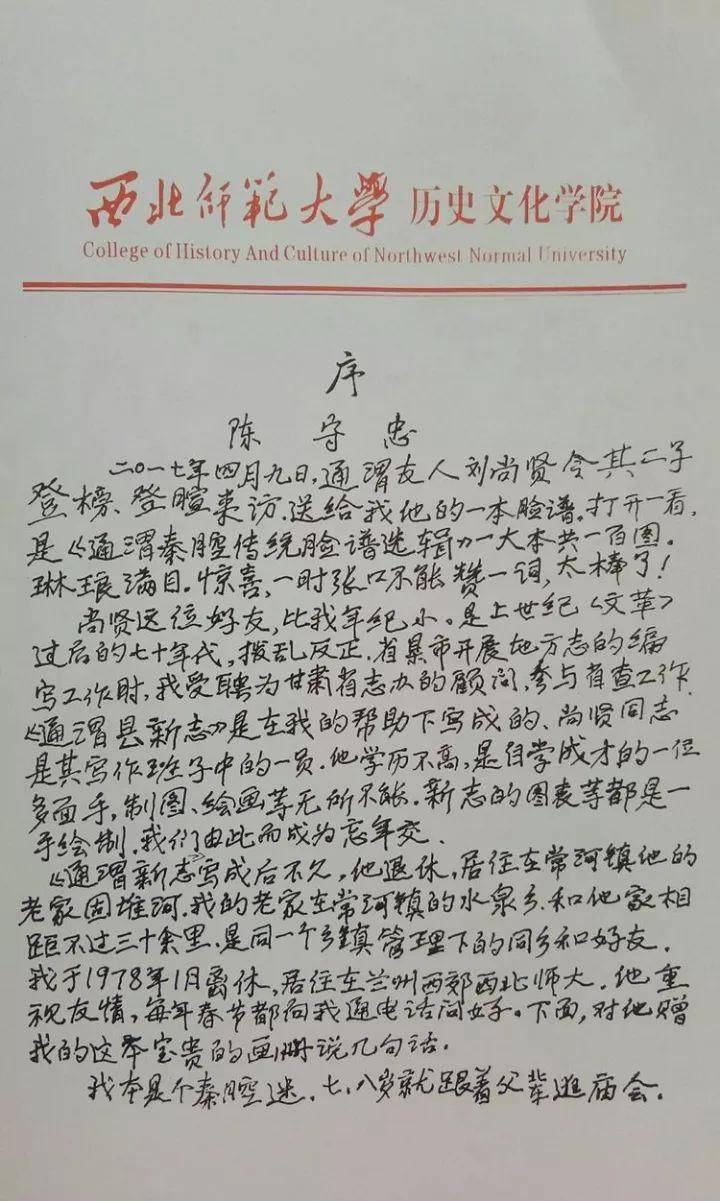 西北师范大学 历史文化学院
College of History And Culture of Northwest Normal University
序
陈 守 忠
二〇一七年四月九日，通渭友人刘尚贤令其二子
登榜、登暄来访，送给我他的一本脸谱。打开一看，
是《通渭秦腔传统脸谱选辑》一大本共一百图。
琳琅满目。惊喜，一时张口不能赞一词，太棒了！
尚贤这位好友，比我年纪小。是上世纪《文革》
过后的七十年代，拨乱反正，省县市开展地方志的编
写工作时，我受聘为甘肃省志办的顾问，参与省查工作。
《通渭县新志》是在我的帮助下写成的、尚贤同志
是其写作班子中的一员。他学历不高，是自学成才的一位
多面手，制图、绘画等无所不能。新志的图表等都是一
手绘制，我们由此而成为忘年交。
《通渭新志写成后不久，他退休，居住在常河镇他的
老家固堆河。我的老家在常河镇的水泉乡，和他家相
距不过三十余里，是同一个乡镇管理下的同乡和好友。
我于1978年1月离休，居住在兰州西郊西北师大。他重
视友情，每年春节都向我通电话问好。下面，对他赠
我的这本宝贵的画册说几句话。
我本是个秦腔迷，七、八岁就跟着父辈逛庙会。